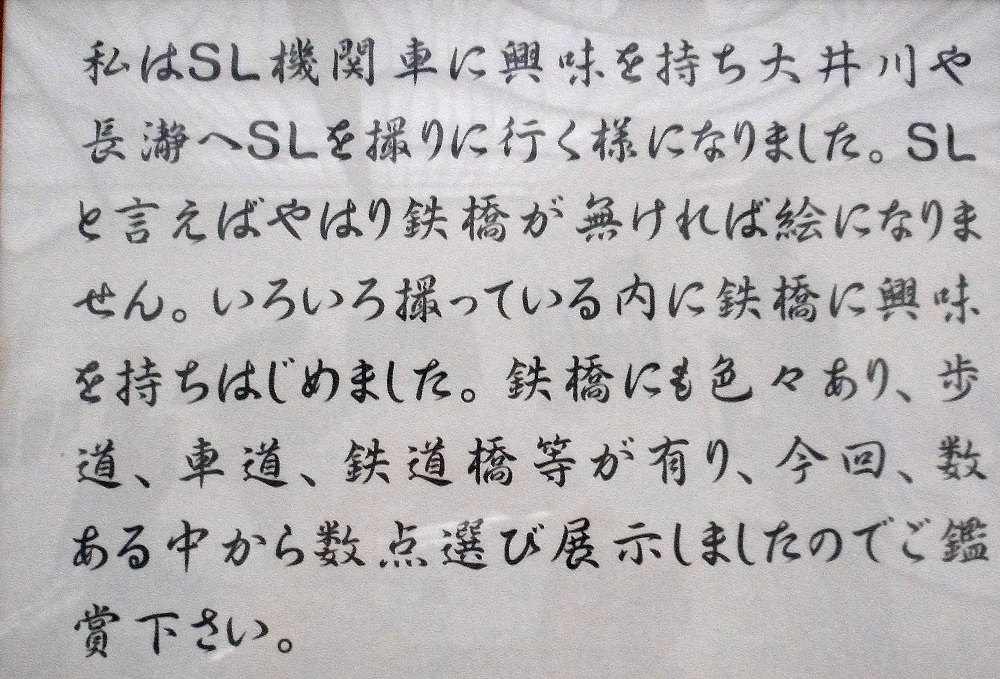 私はSL機関車に興味を持ち大井川や
長瀞へSLを撮りに行く様になりました。SL
と言えばやはり鉄橋が無ければ絵になりま
せん。いろいろ撮っている内に鉄橋に興味
を持ちはじめました。鉄橋にも色々あり、歩
道、車道、鉄道橋等が有り、今回、数
ある中から数点選び展示しましたのでご鑑
賞下さい。